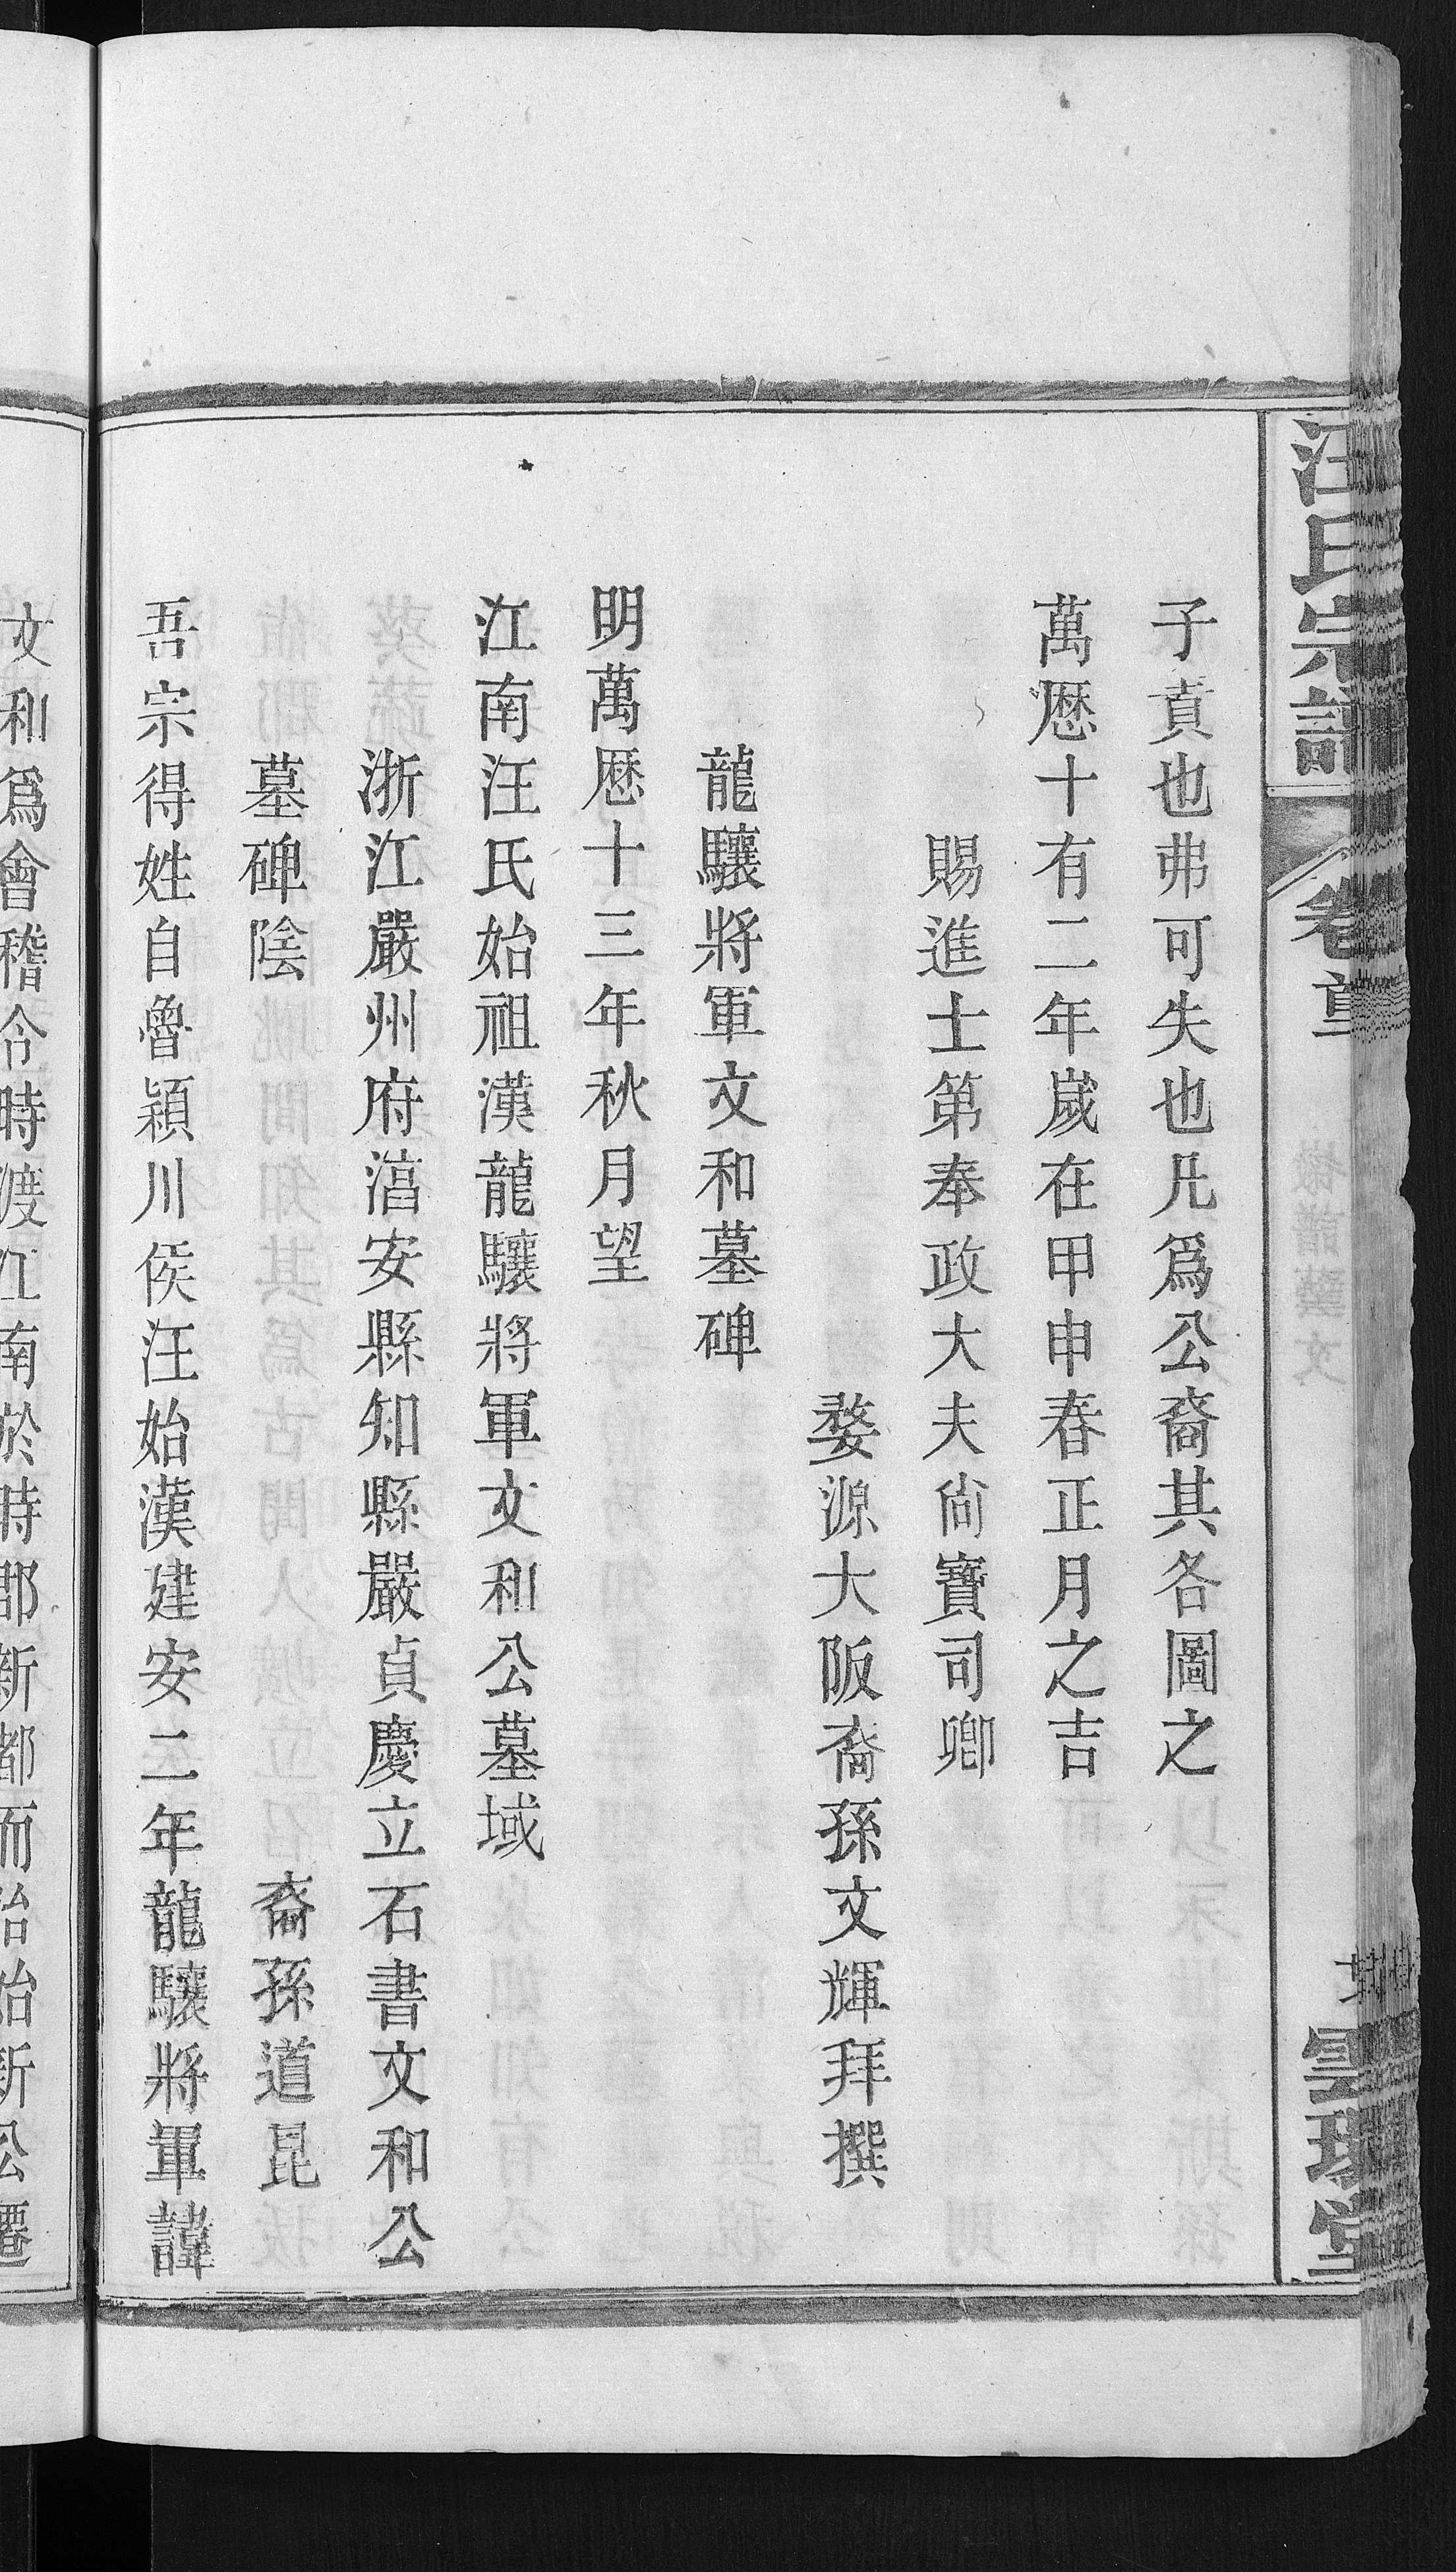 汪氏宗譜
卷首
子貢也弗可失也凡爲公裔其各圖之
萬厯十有二年歲在甲申春正月之吉
賜進士第奉政大夫尚寶司卿
婺源大阪裔孫文輝拜撰
龍驤將軍文和墓碑
明萬厯十三年秋月望
江南汪氏始祖漢龍驤將軍文和公墓域
浙江嚴州府湻安縣知縣嚴貞慶立石書文和公
墓碑陰
裔孫道昆
吾宗得姓自魯潁川侯汪始漢建安二年龍驤將軍諱
文和爲會稽令時渡江南於時郡新都而治始新公遷